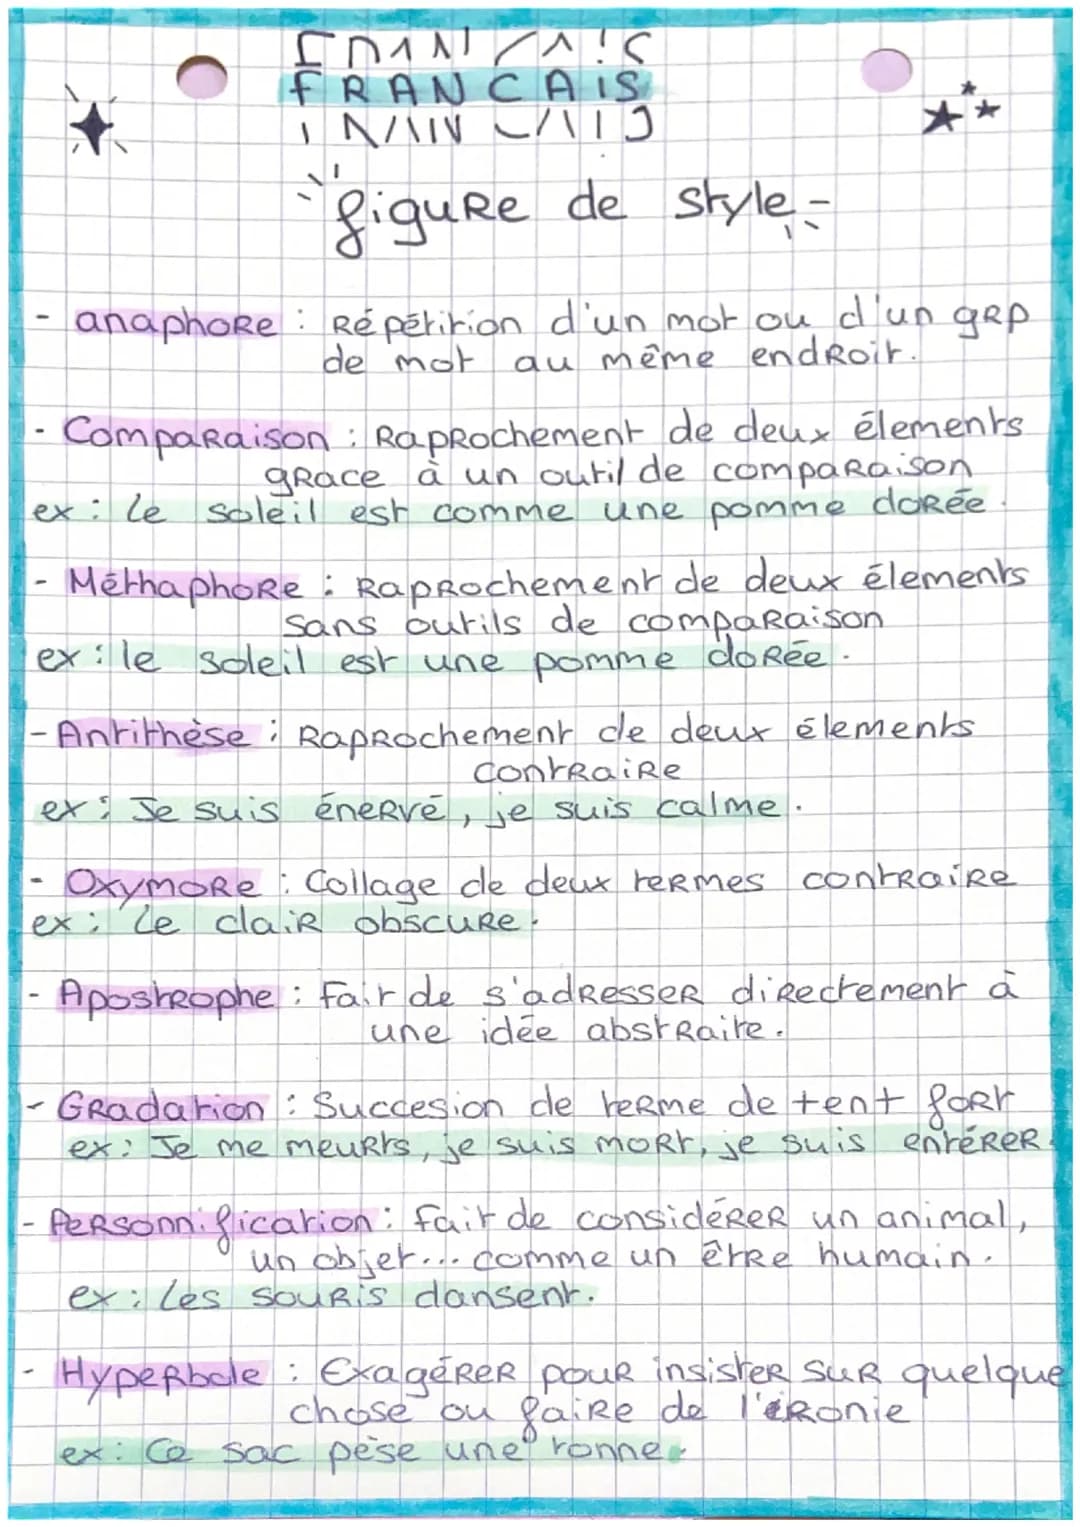 FRANCAiS
figure de style
- anaphore : Répétition d'un mot ou d'un grp
de mot au même endroit.
- Comparaison : Raprochement de deux élements
grace à un outil de comparaison
ex : Le soleil est comme une pomme dorée.
- Méthaphore : Raprochement de deux élements
sans outils de comparaison
ex : le soleil est une pomme dorée.
- Antithèse : Raprochement de deux élements
contraire
ex : Je suis énervé, je suis calme.
- Oxymore : Collage de deux termes contraire
ex : Le clair obscure.
- Apostrophe : Fait de s'adresser directement à
une idée abstraite.
- Gradation : Succesion de terme de + en + fort
ex : Je me meurts, je suis mort, je suis entérer.
- Personnification : fait de considérer un animal,
un objet... comme un être humain.
ex : Les souris dansent.
- Hyperbole : Exagérer pour insister sur quelque
chose ou faire de l'ironie
ex : Ce sac pèse une tonne.